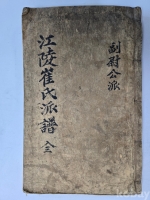 副尉公派
江陵崔氏派譜 全